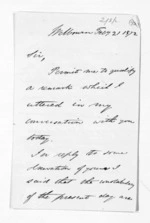 Melbourne Feby 21 1872
Sir,
Permit me to qualify
a remark which I
uttered in my
conversation with you
today.
In reply to some
of yours I
said that the
of the present day are